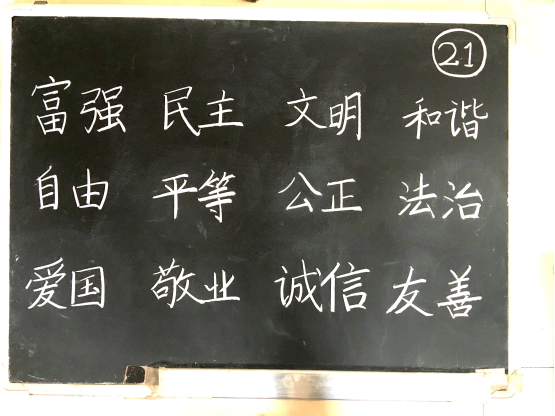 21
富强 民主 文明 和谐
自由 平等 公正 法治
爱国 敬业 诚信 友善